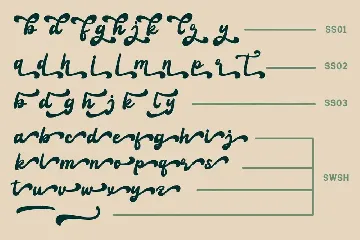 b d f g h j k lg y SS01
a d h i l m n p r t SS02
b d g h j k l y SS03
a b c d e f g h i j
k l m n o p q r s SWSH
t u v w x y z